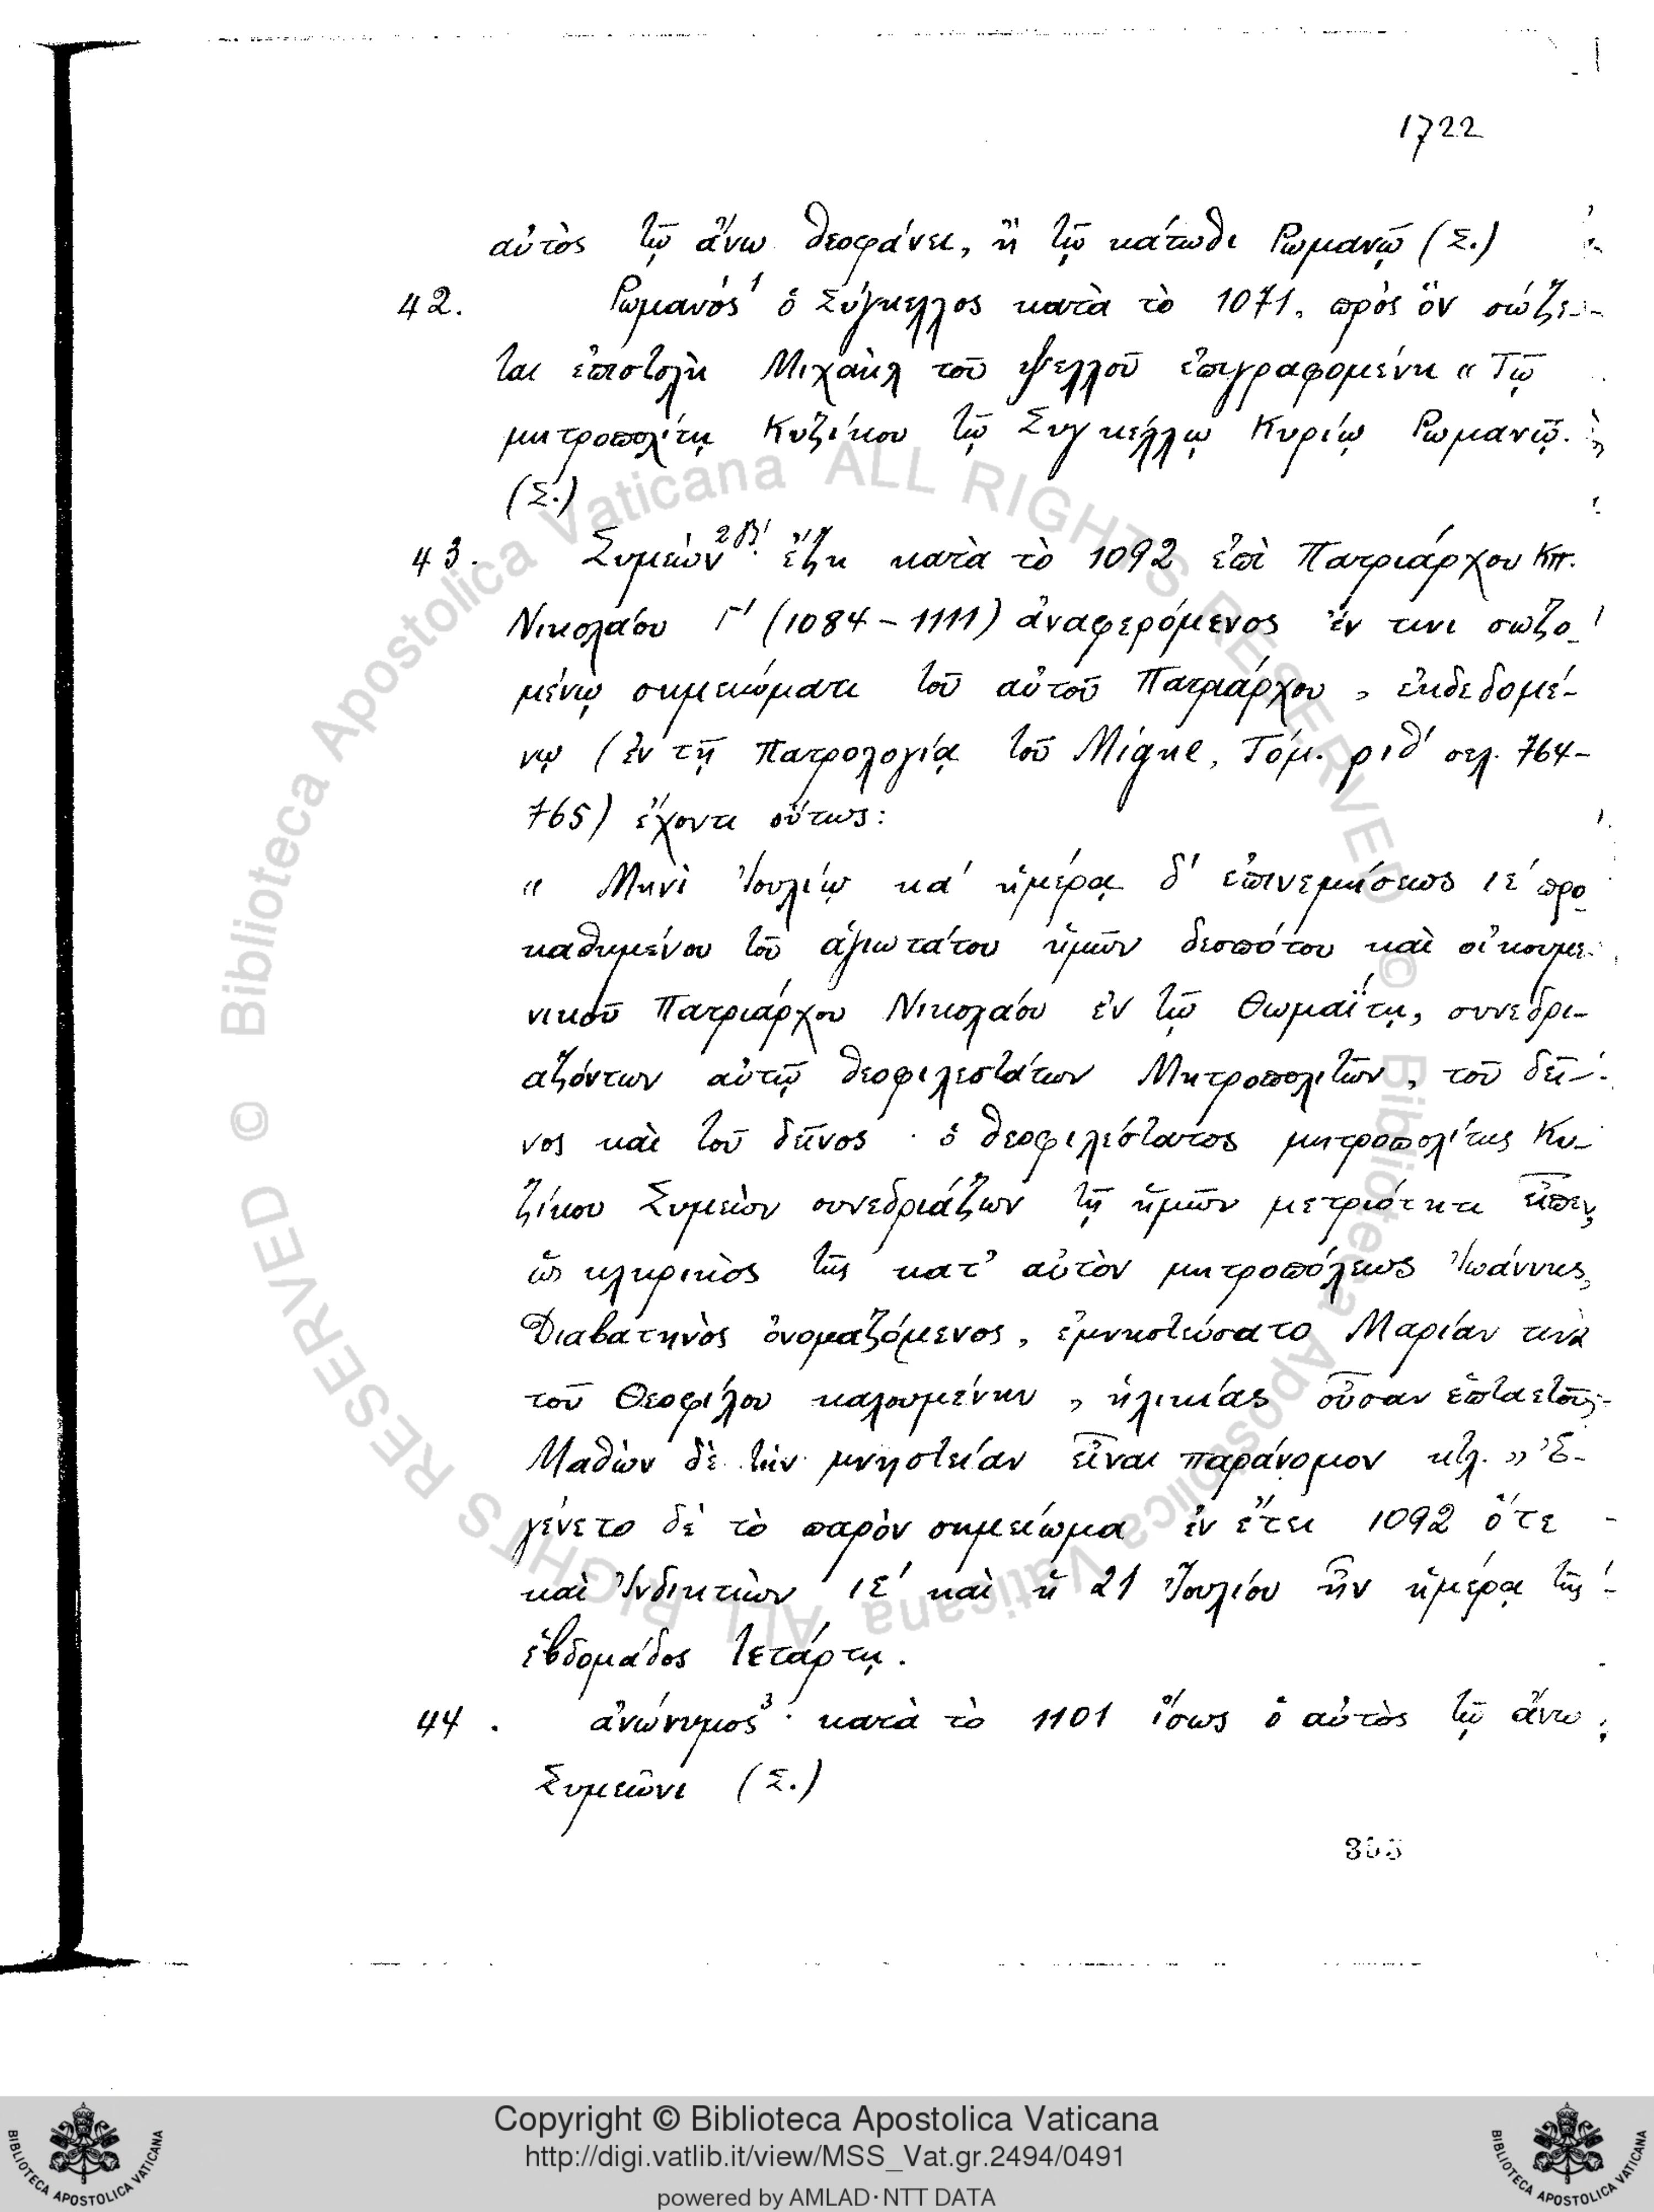 1722
αὐτὸς τῷ ἄνω Θεοφάνει, ἢ τῷ κάτωθι Ρωμανῷ (Σ.)
42. Ρωμανός¹ ὁ Σύγκελλος κατὰ τὸ 1071. πρὸς ὃν σώζε-
ται ἐπιστολὴ Μιχαὴλ τοῦ Ψελλοῦ ἐπιγραφομένη « Τῷ
μητροπολίτῃ Κυζίκου τῷ Συγκέλλῳ Κυρίῳ Ρωμανῷ. »
(Σ.)
43. Συμεὼν² β΄. ἔζη κατὰ τὸ 1092 ἐπὶ Πατριάρχου Κπ.
Νικολάου Γ΄ (1084 – 1111) ἀναφερόμενος ἔν τινι σωζο-
μένῳ σημειώματι τοῦ αὐτοῦ Πατριάρχου, ἐκδεδομέ-
νῳ (ἐν τῇ Πατρολογίᾳ τοῦ Migne, Τόμ. ριθ΄ σελ. 764-
765) ἔχοντι οὕτως:
« Μηνὶ Ἰουλίῳ κα΄ ἡμέρᾳ δ΄ ἐπινεμήσεως ιε΄ προ-
καθημένου τοῦ ἁγιωτάτου ἡμῶν δεσπότου καὶ οἰκουμε-
νικοῦ Πατριάρχου Νικολάου ἐν τῷ Θωμαΐτῃ, συνεδρι-
αζόντων αὐτῷ θεοφιλεστάτων Μητροπολιτῶν, τοῦ δεῖ-
νος καὶ τοῦ δεῖνος · ὁ θεοφιλέστατος μητροπολίτης Κυ-
ζίκου Συμεὼν συνεδριάζων τῇ ἡμῶν μετριότητι εἶπεν,
ὡς κληρικὸς τῆς κατ' αὐτὸν μητροπόλεως Ἰωάννης,
Διαβατηνὸς ὀνομαζόμενος, ἐμνηστεύσατο Μαρίαν τινὰ
τοῦ Θεοφίλου καλουμένην, ἡλικίας οὖσαν ἑπταετοῦς·
Μαθὼν δὲ τὴν μνηστείαν εἶναι παράνομον κτλ. » Ἐ-
γένετο δὲ τὸ παρὸν σημείωμα ἐν ἔτει 1092 ὅτε
καὶ Ἰνδικτιὼν ΙΕ΄ καὶ ἡ 21 Ἰουλίου ἦν ἡμέρᾳ τῆς
ἑβδομάδος Τετάρτῃ.
44. ἀνώνυμος³ · κατὰ τὸ 1101 ἴσως ὁ αὐτὸς τῷ ἄνω
Συμεῶνι (Σ.)
© Biblioteca Apostolica Vaticana ALL RIGHTS RESERVED © Biblioteca Apostolica Vaticana ALL RIGHTS RESERVED
Copyright © Biblioteca Apostolica Vaticana
http://digi.vatlib.it/view/MSS_Vat.gr.2494/0491
powered by AMLAD·NTT DATA
BIBLIOTECA APOSTOLICA VATICANA
BIBLIOTECA APOSTOLICA VATICANA